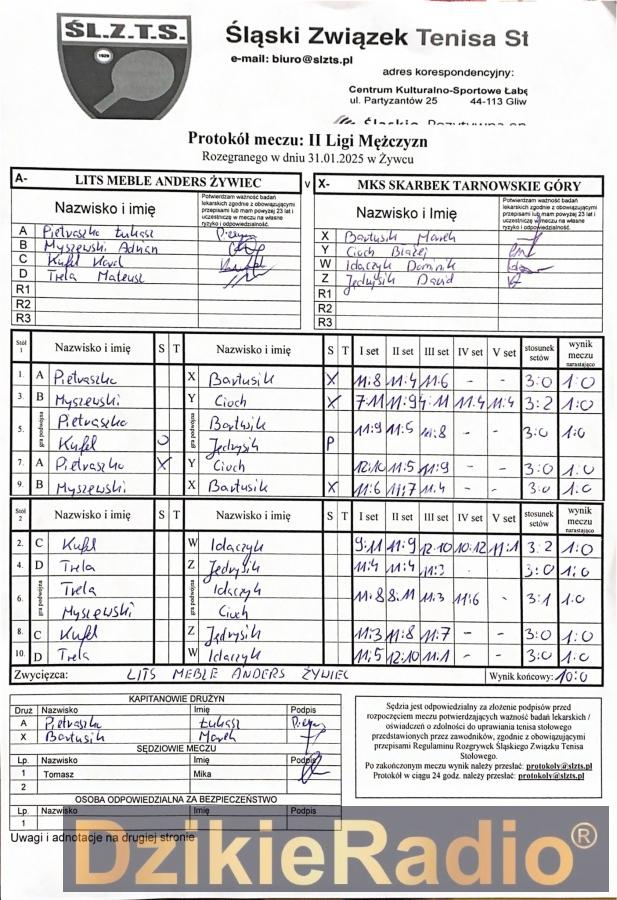 ŚL.Z.T.S.
1929
Śląski Związek Tenisa St
e-mail: biuro@slzts.pl
adres korespondencyjny:
Centrum Kulturalno-Sportowe Łabę
ul. Partyzantów 25 44-113 Gliw
Protokół meczu: II Ligi Mężczyzn
Rozegranego w dniu 31.01.2025 w Żywcu
A- LITS MEBLE ANDERS ŻYWIEC v X- MKS SKARBEK TARNOWSKIE GÓRY
Nazwisko i imię Potwierdzam ważność badań lekarskich zgodnie z obowiązującymi przepisami lub mam powyżej 23 lat i uczestniczę w meczu na własne ryzyko i odpowiedzialność.
Nazwisko i Imię Potwierdzam ważność badań lekarskich zgodnie z obowiązującymi przepisami lub mam powyżej 23 lat i uczestniczę w meczu na własne ryzyko i odpowiedzialność.
A Pietraszko Łukasz X Bartusik Marek
B Myszewski Adrian Y Cioch Błażej
C Kufel Karol W Idaczyk Dominik
D Trela Mateusz Z Jędrysik Dawid
R1 R1
R2 R2
R3 R3
Stół 1 Nazwisko i imię S T Nazwisko i imię S T I set II set III set IV set V set stosunek setów wynik meczu narastająco
1. A Pietraszko X Bartusik X 11:8 11:4 11:6 - - 3:0 1:0
3. B Myszewski Y Cioch X 7:11 11:9 4:11 11:4 11:4 3:2 1:0
5. gra podwójna Pietraszko gra podwójna Bartusik 11:9 11:5 11:8 - - 3:0 1:0
Kufel O Jędrysik P
7. A Pietraszko X Y Cioch 12:10 11:5 11:9 - - 3:0 1:0
9. B Myszewski X Bartusik X 11:6 11:7 11:4 - - 3:0 1:0
Stół 2 Nazwisko i imię S T Nazwisko i imię S T I set II set III set IV set V set stosunek setów wynik meczu narastająco
2. C Kufel W Idaczyk 9:11 11:9 12:10 10:12 11:1 3:2 1:0
4. D Trela Z Jędrysik 11:4 11:4 11:3 - - 3:0 1:0
6. gra podwójna Trela gra podwójna Idaczyk 11:8 8:11 11:3 11:6 - 3:1 1:0
Myszewski Cioch
8. C Kufel Z Jędrysik 11:3 11:8 11:7 - - 3:0 1:0
10. D Trela W Idaczyk 11:5 12:10 11:1 - - 3:0 1:0
Zwycięzca: LITS MEBLE ANDERS ŻYWIEC Wynik końcowy: 10:0
KAPITANOWIE DRUŻYN
Druż Nazwisko Imię Podpis
A Pietraszko Łukasz
X Bartusik Marek
SĘDZIOWIE MECZU
Lp. Nazwisko Imię Podpis
1 Tomasz Mika
2
OSOBA ODPOWIEDZIALNA ZA BEZPIECZEŃSTWO
Lp. Nazwisko Imię Podpis
1
Uwagi i adnotacje na drugiej stronie
Sędzia jest odpowiedzialny za złożenie podpisów przed
rozpoczęciem meczu potwierdzających ważność badań lekarskich /
oświadczeń o zdolności do uprawiania tenisa stołowego
przedstawionych przez zawodników, zgodnie z obowiązującymi
przepisami Regulaminu Rozgrywek Śląskiego Związku Tenisa
Stołowego.
Po zakończonym meczu wynik należy przesłać: protokoly@slzts.pl
Protokół w ciągu 24 godz. należy przesłać: protokoly@slzts.pl
DzikieRadio®